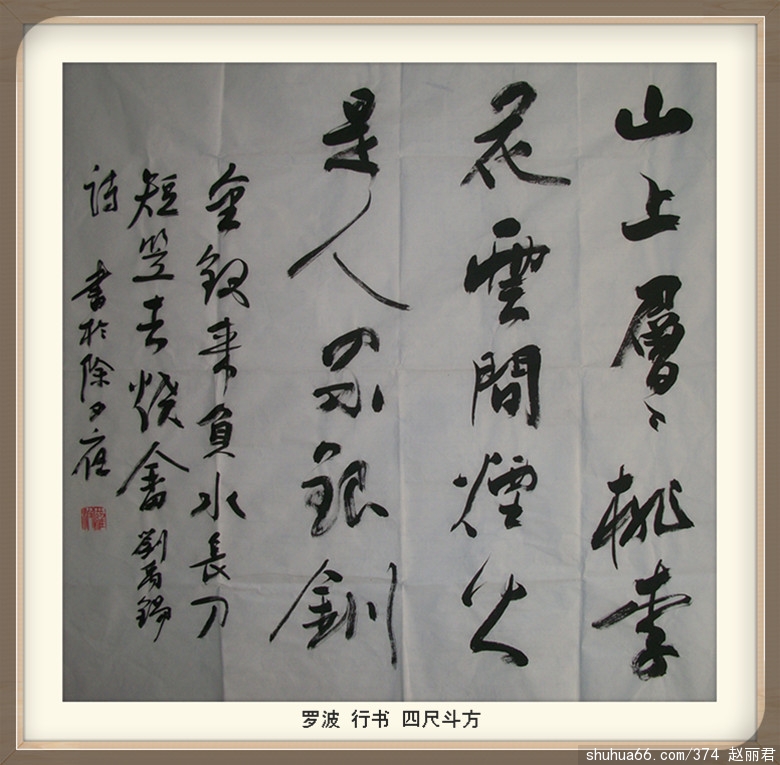 山上層〻桃李
花雲間煙火
是人家銀釧
金釵来負水長刀
短笠去烧畬劉禹錫
詩 書於除夕夜
罗波 行书 四尺斗方
shuhua66.com/374 赵丽君